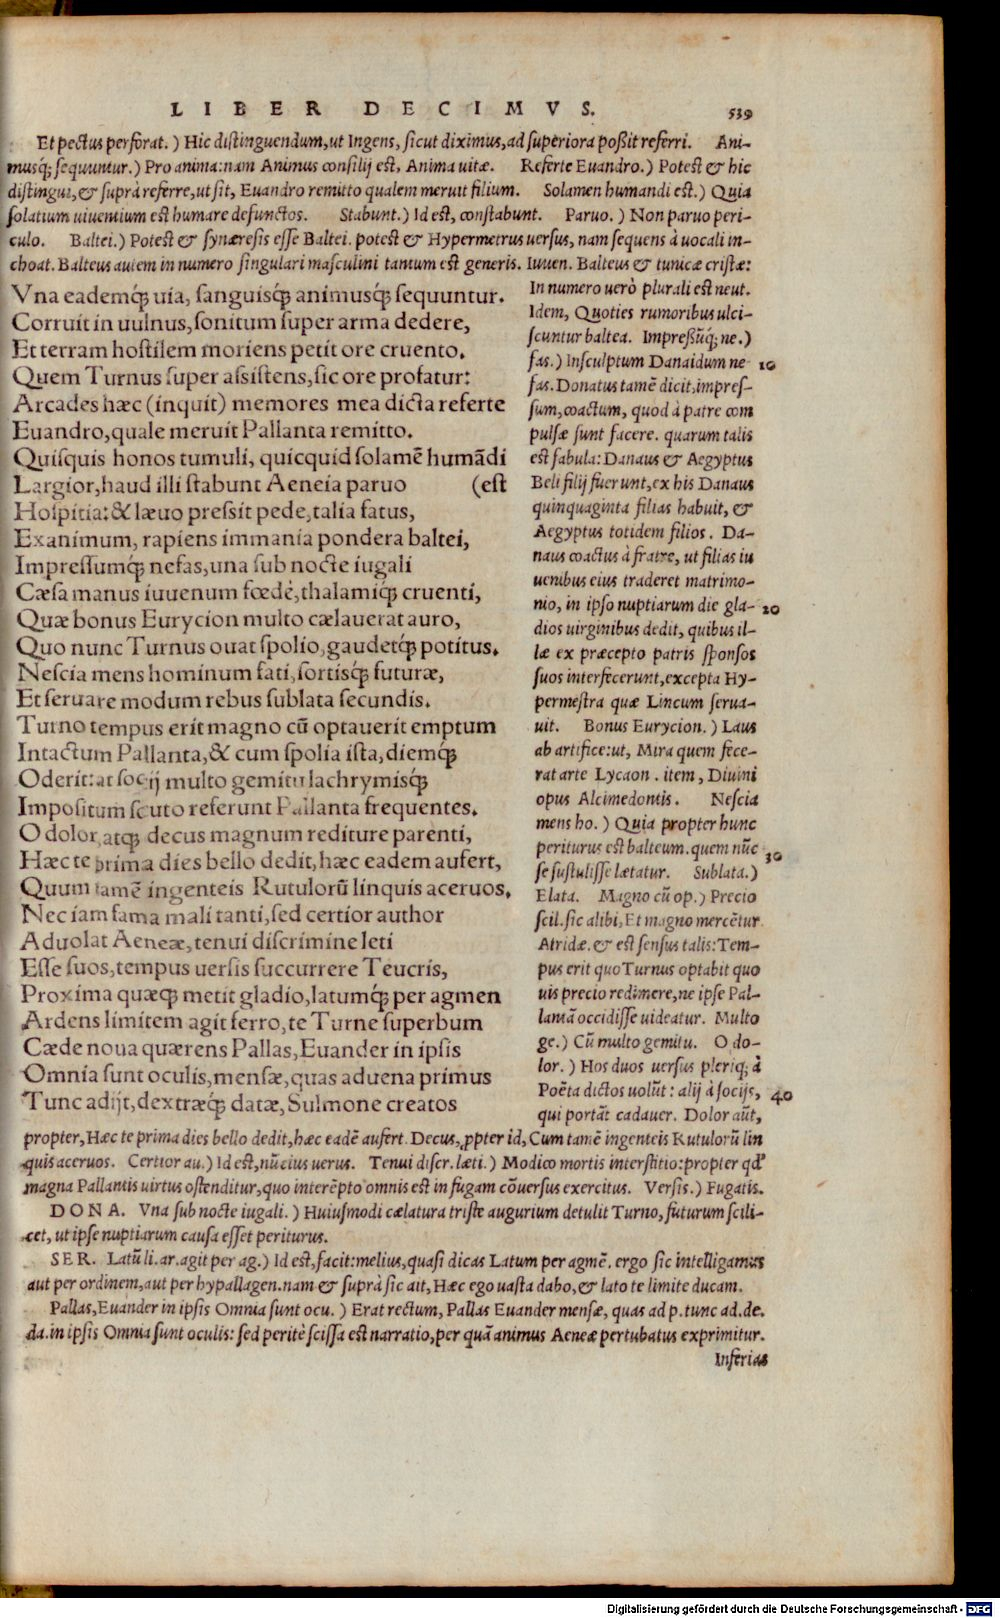 LIBER DECIMVS. 539
Et pectus perforat.) Hic distinguendum, ut Ingens, sicut diximus, ad superiora poßit referri. Ani-
musq; sequuntur.) Pro anima: nam Animus consilij est, Anima uitæ. Referte Euandro.) Potest & hic
distingui, & suprà referre, ut sit, Euandro remitto qualem meruit filium. Solamen humandi est.) Quia
solatium uiuentium est humare defunctos. Stabunt.) Id est, constabunt. Paruo.) Non paruo peri-
culo. Baltei.) Potest & synæresis esse Baltei. potest & Hypermetrus uersus, nam sequens à uocali in-
choat. Balteus autem in numero singulari masculini tantum est generis. Iuuen. Balteus & tunicæ cristæ:
Vna eademq; uia, sanguisq; animusq; sequuntur.
Corruit in uulnus, sonitum super arma dedere,
Et terram hostilem moriens petit ore cruento.
Quem Turnus super assistens, sic ore profatur:
Arcades hæc (inquit) memores mea dicta referte
Euandro, quale meruit Pallanta remitto.
Quisquis honos tumuli, quicquid solamē humādi
Largior, haud illi stabunt Aeneia paruo (est
Hospitia: & læuo pressit pede, talia fatus,
Exanimum, rapiens immania pondera baltei,
Impressumq; nefas, una sub nocte iugali
Cæsa manus iuuenum fœdè, thalamiq; cruenti,
Quæ bonus Eurycion multo cælauerat auro,
Quo nunc Turnus ouat spolio, gaudetq; potitus.
Nescia mens hominum fati, sortisq; futuræ,
Et seruare modum rebus sublata secundis.
Turno tempus erit magno cū optauerit emptum
Intactum Pallanta, & cum spolia ista, diemq;
Oderit: at socij multo gemitu lachrymisq;
Impositum scuto referunt Pallanta frequentes.
O dolor, atq; decus magnum rediture parenti,
Hæc te prima dies bello dedit, hæc eadem aufert,
Quum tamē ingenteis Rutulorū linquis aceruos.
Nec iam fama mali tanti, sed certior author
Aduolat Aeneæ, tenui discrimine leti
Esse suos, tempus uersis succurrere Teucris,
Proxima quæq; metit gladio, latumq; per agmen
Ardens limitem agit ferro, te Turne superbum
Cæde noua quærens Pallas, Euander in ipsis
Omnia sunt oculis, mensæ, quas aduena primus
Tunc adijt, dextræq; datæ, Sulmone creatos
In numero uerò plurali est neut.
Idem, Quoties rumoribus ulci-
scuntur baltea. Impreßūq; ne.)
fas.) Insculptum Danaidum ne- 10
fas. Donatus tamē dicit, impres-
sum, coactum, quod à patre com
pulsæ sunt facere. quarum talis
est fabula: Danaus & Aegyptus
Beli filij fuerunt, ex his Danaus
quinquaginta filias habuit, &
Aegyptus totidem filios. Da-
naus coactus à fratre, ut filias iu
uenibus eius traderet matrimo-
nio, in ipso nuptiarum die gla- 20
dios uirginibus dedit, quibus il-
læ ex præcepto patris sponsos
suos interfecerunt, excepta Hy-
permestra quæ Lincum serua-
uit. Bonus Eurycion.) Laus
ab artifice: ut, Mira quem fece-
rat arte Lycaon. item, Diuini
opus Alcimedontis. Nescia
mens ho.) Quia propter hunc
periturus est balteum. quem nūc 30
se sustulisse lætatur. Sublata.)
Elata. Magno cū op.) Precio
scil. sic alibi, Et magno mercētur
Atridæ. & est sensus talis: Tem-
pus erit quo Turnus optabit quo
uis precio redimere, ne ipse Pal-
lantā occidisse uideatur. Multo
ge.) Cū multo gemitu. O do-
lor.) Hos duos uersus pleriq; à
Poëta dictos uolūt: alij à socijs, 40
qui portāt cadauer. Dolor aūt,
propter, Hæc te prima dies bello dedit, hæc eadē aufert. Decus, ꝓpter id, Cum tamē ingenteis Rutulorū lin
quis aceruos. Certior au.) Id est, nūcius uerus. Tenui discr. læti.) Modico mortis interstitio: propter qd'
magna Pallantis uirtus ostenditur, quo interēpto omnis est in fugam cōuersus exercitus. Versis.) Fugatis.
DONA. Vna sub nocte iugali.) Huiusmodi cælatura triste augurium detulit Turno, futurum scili-
cet, ut ipse nuptiarum causa esset periturus.
SER. Latū li. ar. agit per ag.) Id est, facit: melius, quasi dicas Latum per agmē. ergo sic intelligamus
aut per ordinem, aut per hypallagen. nam & suprà sic ait, Hæc ego uasta dabo, & lato te limite ducam.
Pallas, Euander in ipsis Omnia sunt ocu.) Erat rectum, Pallas Euander mensæ, quas ad p. tunc ad. de.
da. in ipsis Omnia sunt oculis: sed peritè scissa est narratio, per quā animus Aeneæ pertubatus exprimitur.
Inferias
Digitalisierung gefördert durch die Deutsche Forschungsgemeinschaft - DFG